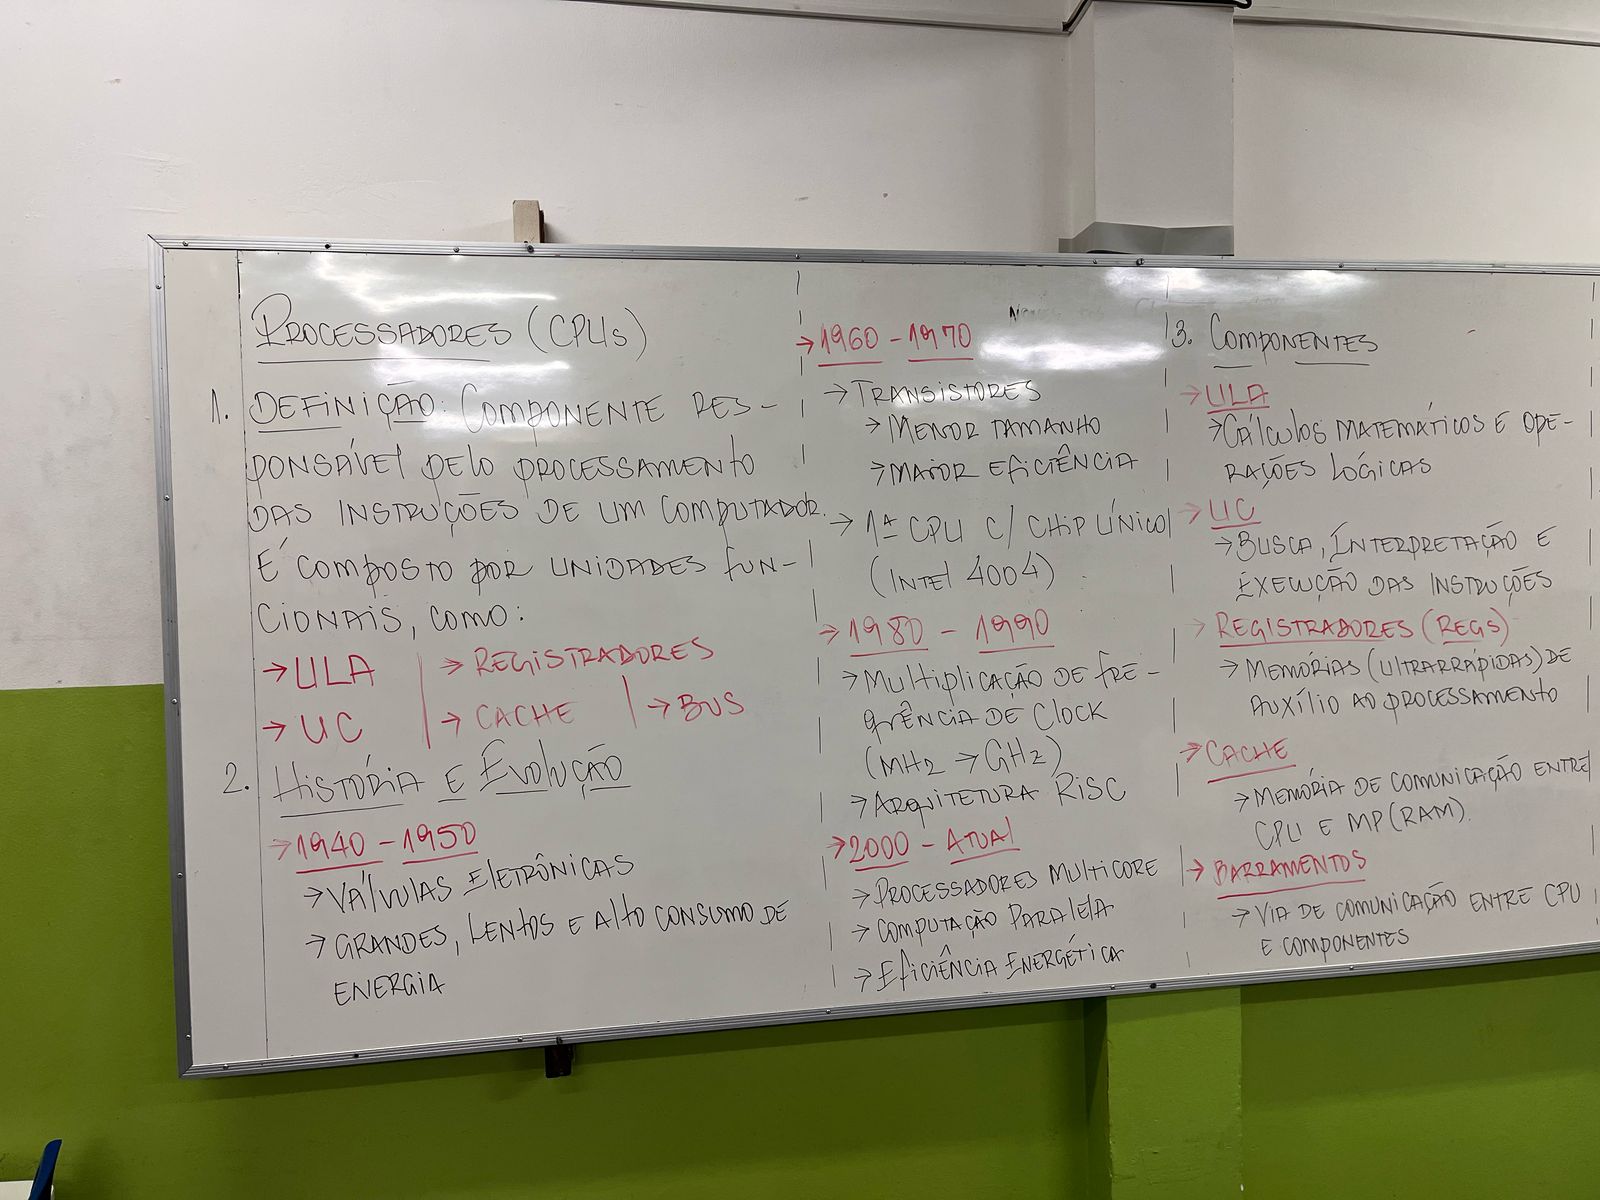 PROCESSADORES (CPUs)
1. DEFINIÇÃO: COMPONENTE RES-
PONSÁVEL PELO PROCESSAMENTO
DAS INSTRUÇÕES DE UM COMPUTADOR.
É COMPOSTO POR UNIDADES FUN-
CIONAIS, COMO:
→ ULA | → REGISTRADORES
→ UC | → CACHE | → BUS
2. HISTÓRIA E EVOLUÇÃO
→ 1940 - 1950
→ VÁLVULAS ELETRÔNICAS
→ GRANDES, LENTOS E ALTO CONSUMO DE
ENERGIA
→ 1960 - 1970
→ TRANSISTORES
→ MENOR TAMANHO
→ MAIOR EFICIÊNCIA
→ 1ª CPU C/ CHIP ÚNICO
(INTEL 4004)
→ 1980 - 1990
→ MULTIPLICAÇÃO DE FRE-
QUÊNCIA DE CLOCK
(MHz → GHz)
→ ARQUITETURA RISC
→ 2000 - ATUAL
→ PROCESSADORES MULTICORE
→ COMPUTAÇÃO PARALELA
→ EFICIÊNCIA ENERGÉTICA
3. COMPONENTES
→ ULA
→ CÁLCULOS MATEMÁTICOS E OPE-
RAÇÕES LÓGICAS
→ UC
→ BUSCA, INTERPRETAÇÃO E
EXECUÇÃO DAS INSTRUÇÕES
→ REGISTRADORES (REGS)
→ MEMÓRIAS (ULTRARRÁPIDAS) DE
AUXÍLIO AO PROCESSAMENTO
→ CACHE
→ MEMÓRIA DE COMUNICAÇÃO ENTRE
CPU E MP (RAM).
→ BARRAMENTOS
→ VIA DE COMUNICAÇÃO ENTRE CPU
E COMPONENTES